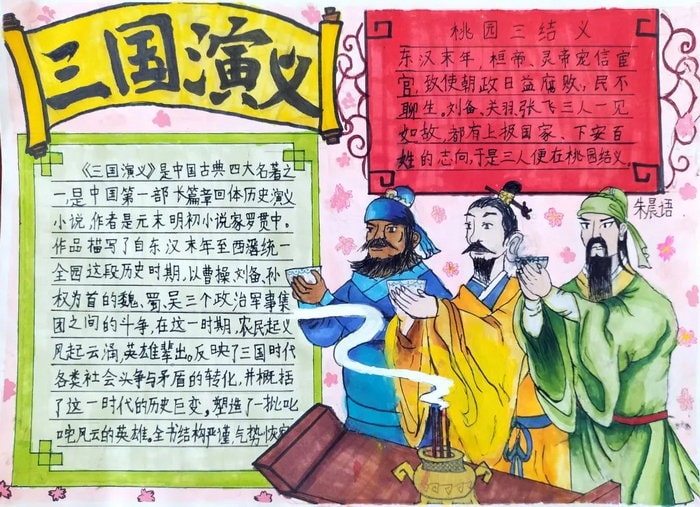 三国演义
桃园三结义
东汉末年,桓帝、灵帝宠信宦
官,致使朝政日益腐败,民不
聊生。刘备、关羽、张飞三人一见
如故,都有上报国家、下安百
姓的志向,于是三人便在桃园结义。
朱晨语
《三国演义》是中国古典四大名著之
一,是中国第一部长篇章回体历史演义
小说,作者是元末明初小说家罗贯中。
作品描写了自东汉末年至西晋统一
全国这段历史时期,以曹操、刘备、孙
权为首的魏、蜀、吴三个政治军事集
团之间的斗争,在这一时期,农民起义
风起云涌,英雄辈出。反映了三国时代
各类社会斗争与矛盾的转化,并概括
了这一时代的历史巨变,塑造了一批叱
咤风云的英雄。全书结构严谨,气势恢宏